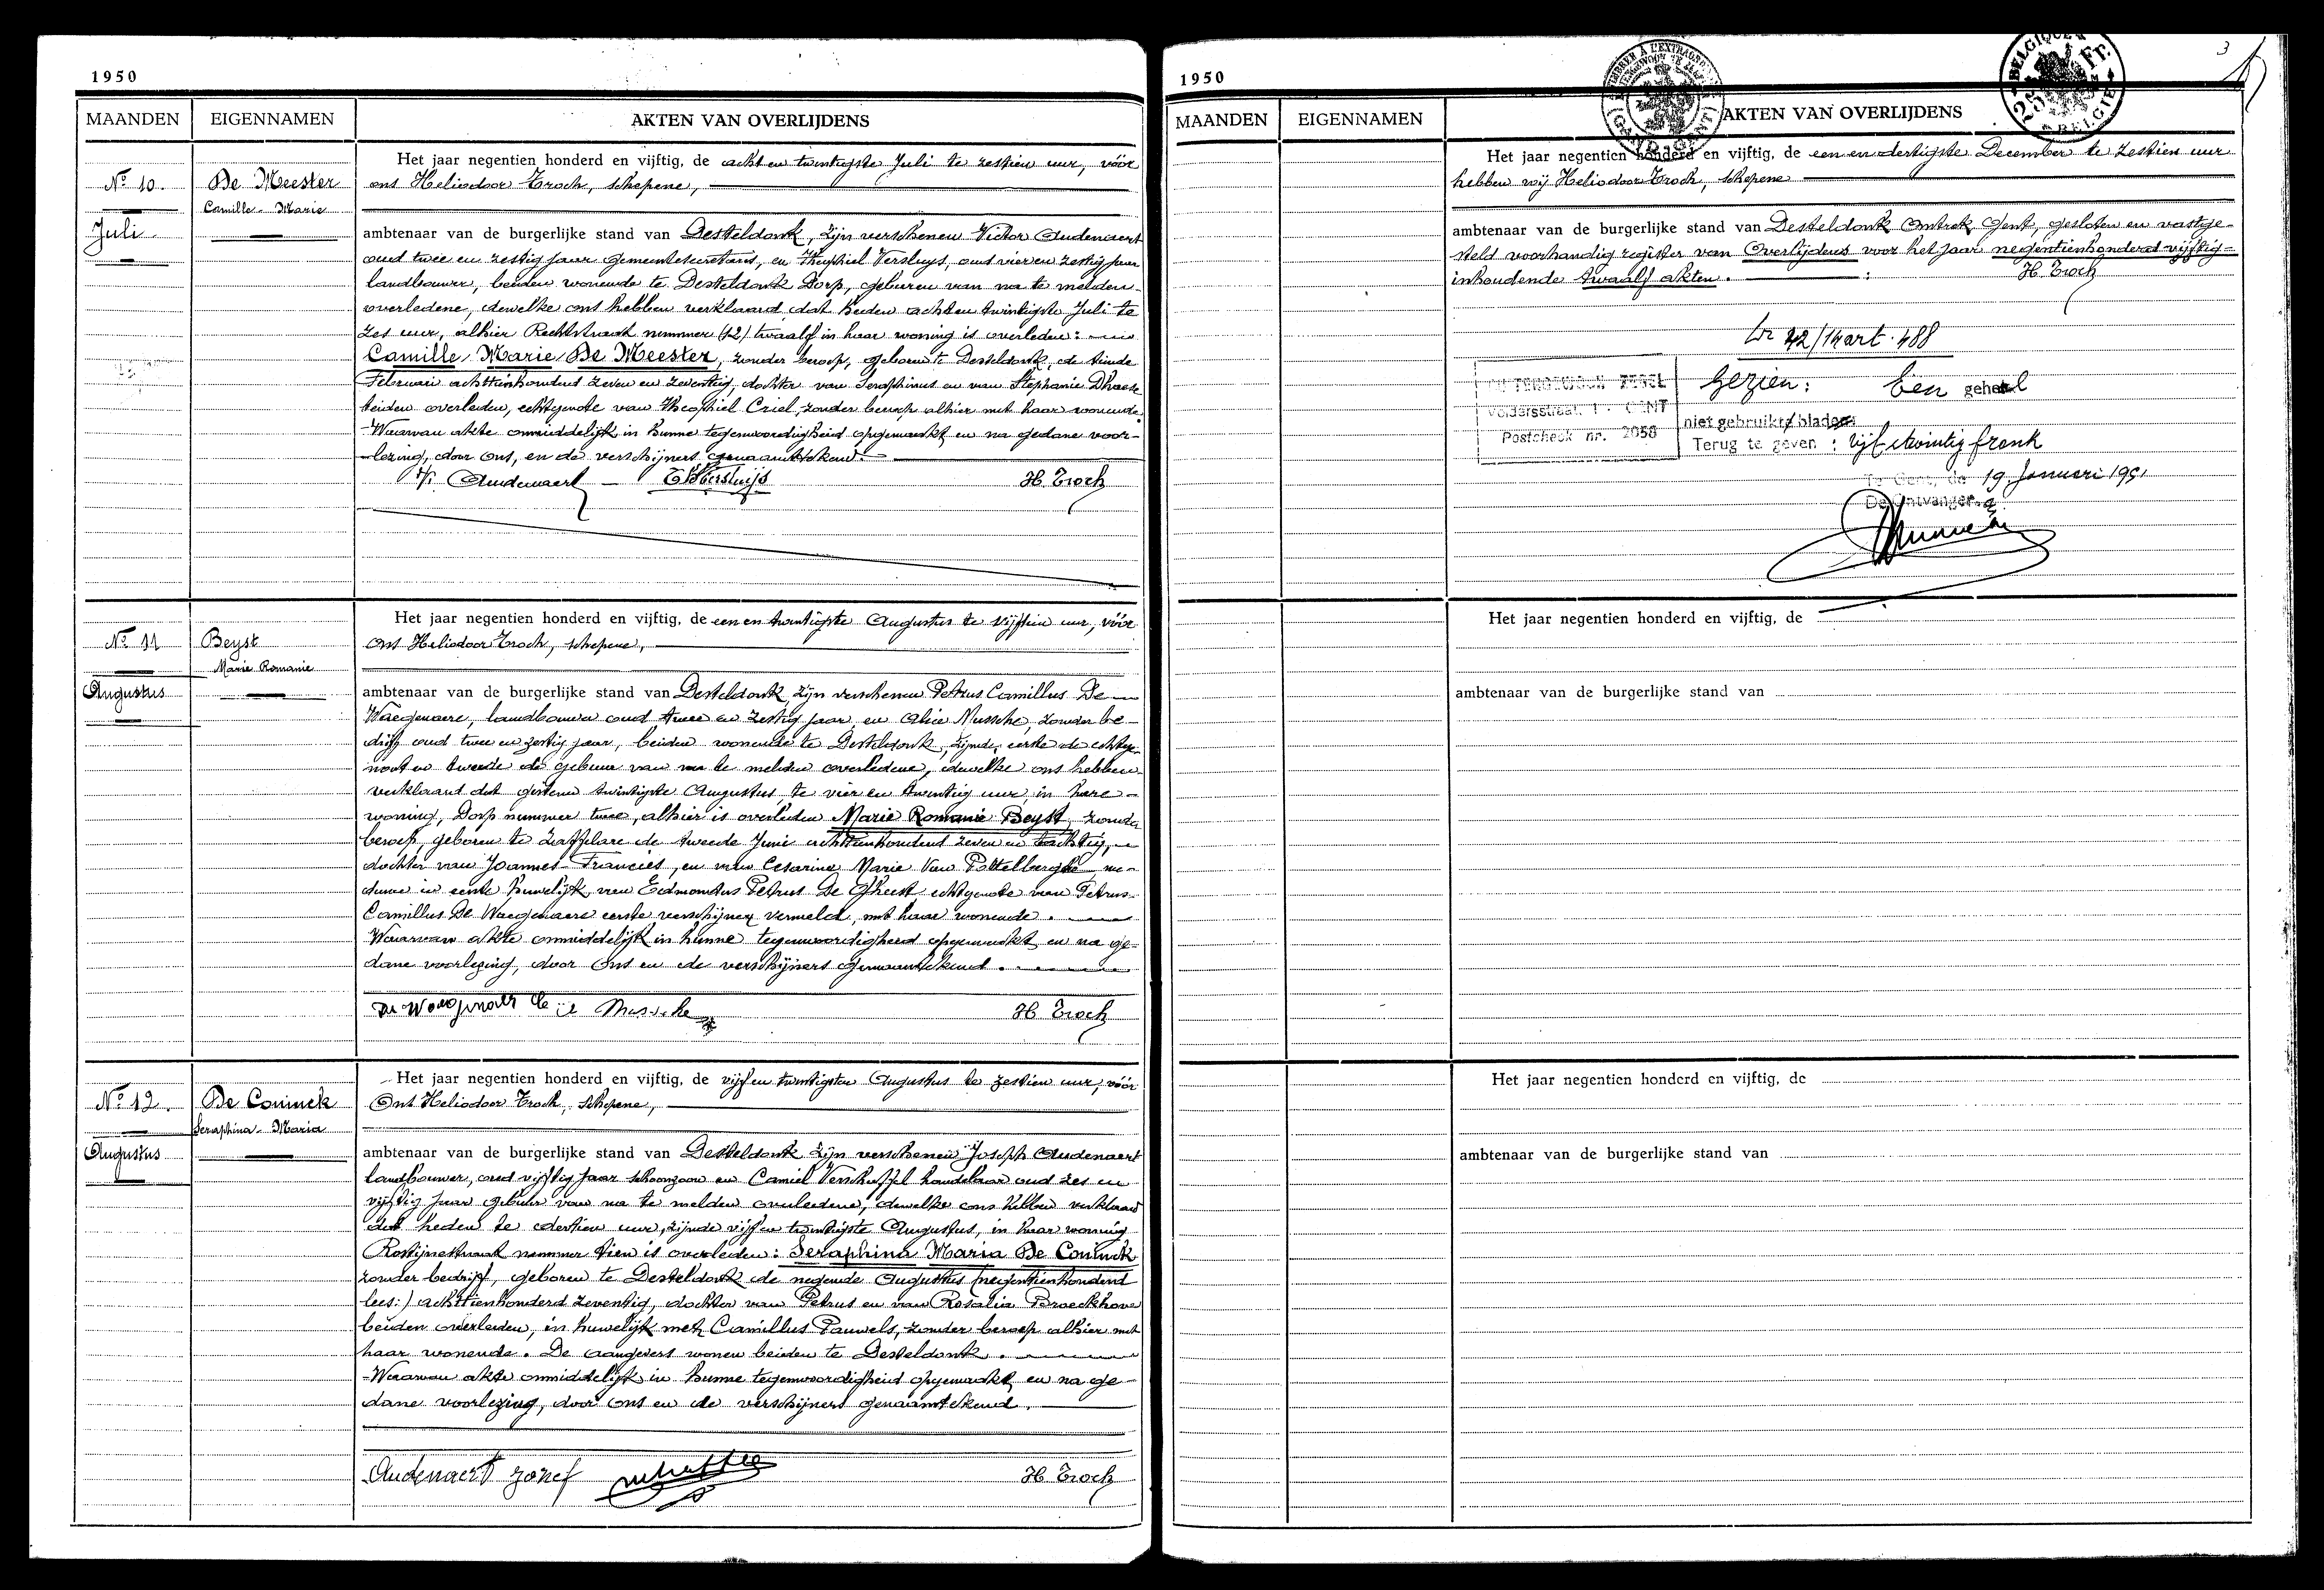 1950
MAANDEN EIGENNAMEN AKTEN VAN OVERLIJDENS
Het jaar negentien honderd en vijftig, de acht en twintigste Juli te zestien uur, vóór
No 10. De Meester ons Heliodoor Troch, schepene,
Camille-Marie
Juli ambtenaar van de burgerlijke stand van Desteldonk, zijn verschenen Victor Audenaert
oud twee en zestig jaar gemeentesecretaris, en Theophiel Versluys, oud vier en zestig jaar
landbouwer, beiden wonende te Desteldonk Dorp, geburen van na te melden
overledene, dewelke ons hebben verklaard dat heden achten twintigste Juli te
zes uur, alhier Rechtstraat nummer (12) twaalf in haar woning is overleden:
Camille Marie De Meester, zonder beroep, geboren te Desteldonk, de tiende
Februari achttienhonderd zeven en zeventig, dochter van Seraphinus en van Stephanie Dhaese
beiden overleden, echtgenote van Theophiel Criel, zonder beroep alhier met haar wonende.
Waarvan akte onmiddelijk in hunne tegenwoordigheid opgemaakt en na gedane voor-
lezing, door ons, en de verschijners genaamtekend.
Vr Audenaert — Th Versluijs H. Troch
Het jaar negentien honderd en vijftig, de een en twintigste Augustus te vijftien uur, vóór
No 11 Beyst ons Heliodoor Troch, schepene,
Marie Romanie
Augustus ambtenaar van de burgerlijke stand van Desteldonk, zijn verschenen Petrus Camillus De
Waegenaere, landbouwer oud twee en zestig jaar en Alice Mussche, zonder be-
drijf oud twee en zestig jaar, beiden wonende te Desteldonk, zijnde, eerste de echtge-
noot en tweede de gebuur van na te melden overledene, dewelke ons hebben
verklaard dat gisteren twintigste Augustus, te vier en twintig uur, in hare
woning, Dorp nummer twee, alhier is overleden Marie Romanie Beyst, zonder
beroep, geboren te Zaffelare de tweede Juni achttienhonderd zeven en tachtig,
dochter van Joannes-Francies, en van Cesarine Marie Van Pottelberghe we-
duwe in eerste huwelijk, van Edmondus Petrus De Gheest, echtgenote van Petrus-
Camillus De Waegenaere eerste verschijner vermeld, met haar wonende.
Waarvan akte onmiddelijk in hunne tegenwoordigheid opgemaakt, en na ge-
dane voorlezing, door ons en de verschijners genaamtekend.
Mussche H. Troch
Het jaar negentien honderd en vijftig, de vijf en twintigsten Augustus te zestien uur, vóór
No 12. De Coninck Ons Heliodoor Troch, schepene,
Seraphina-Maria
Augustus ambtenaar van de burgerlijke stand van Desteldonk zijn verschenen Joseph Audenaert
landbouwer, oud vijftig jaar schoonzoon en Camiel Verschaffel handelaar oud zes en
vijftig jaar gebuur van na te melden overledene, dewelke ons hebben verklaard
dat heden te dertien uur, zijnde vijf en twintigste Augustus, in haar woning
Rostijnestraat nummer tien is overleden: Seraphina Maria De Coninck
zonder bedrijf, geboren te Desteldonk de negende Augustus (negentienhonderd
lees:) achttienhonderd zeventig, dochter van Petrus en van Rosalia Broeckhove
beiden overleden, in huwelijk met Camillus Pauwels, zonder beroep alhier met
haar wonende. De aangevers wonen beiden te Desteldonk.
Waarvan akte onmiddelijk in hunne tegenwoordigheid opgemaakt, en na ge-
dane voorlezing, door ons en de verschijners genaamtekend.
Audenaert Jozef H. Troch
3
1950
MAANDEN EIGENNAMEN AKTEN VAN OVERLIJDENS
Het jaar negentien honderd en vijftig, de een en dertigste December te zestien uur
hebben wij Heliodoor Troch, schepene
ambtenaar van de burgerlijke stand van Desteldonk Omtrek Gent, gesloten en vastge-
steld voorhandig register van Overlijdens voor het jaar negentienhonderd vijftig
inhoudende twaalf akten. H. Troch
42/14 art. 488
Gezien: Een geheel
niet gebruikt blad
Postcheck nr. 2058 Terug te geven: vijf twintig frank
Te Gent, de 19 Januari 1951
De Ontvanger
Het jaar negentien honderd en vijftig, de
ambtenaar van de burgerlijke stand van
Het jaar negentien honderd en vijftig, de
ambtenaar van de burgerlijke stand van